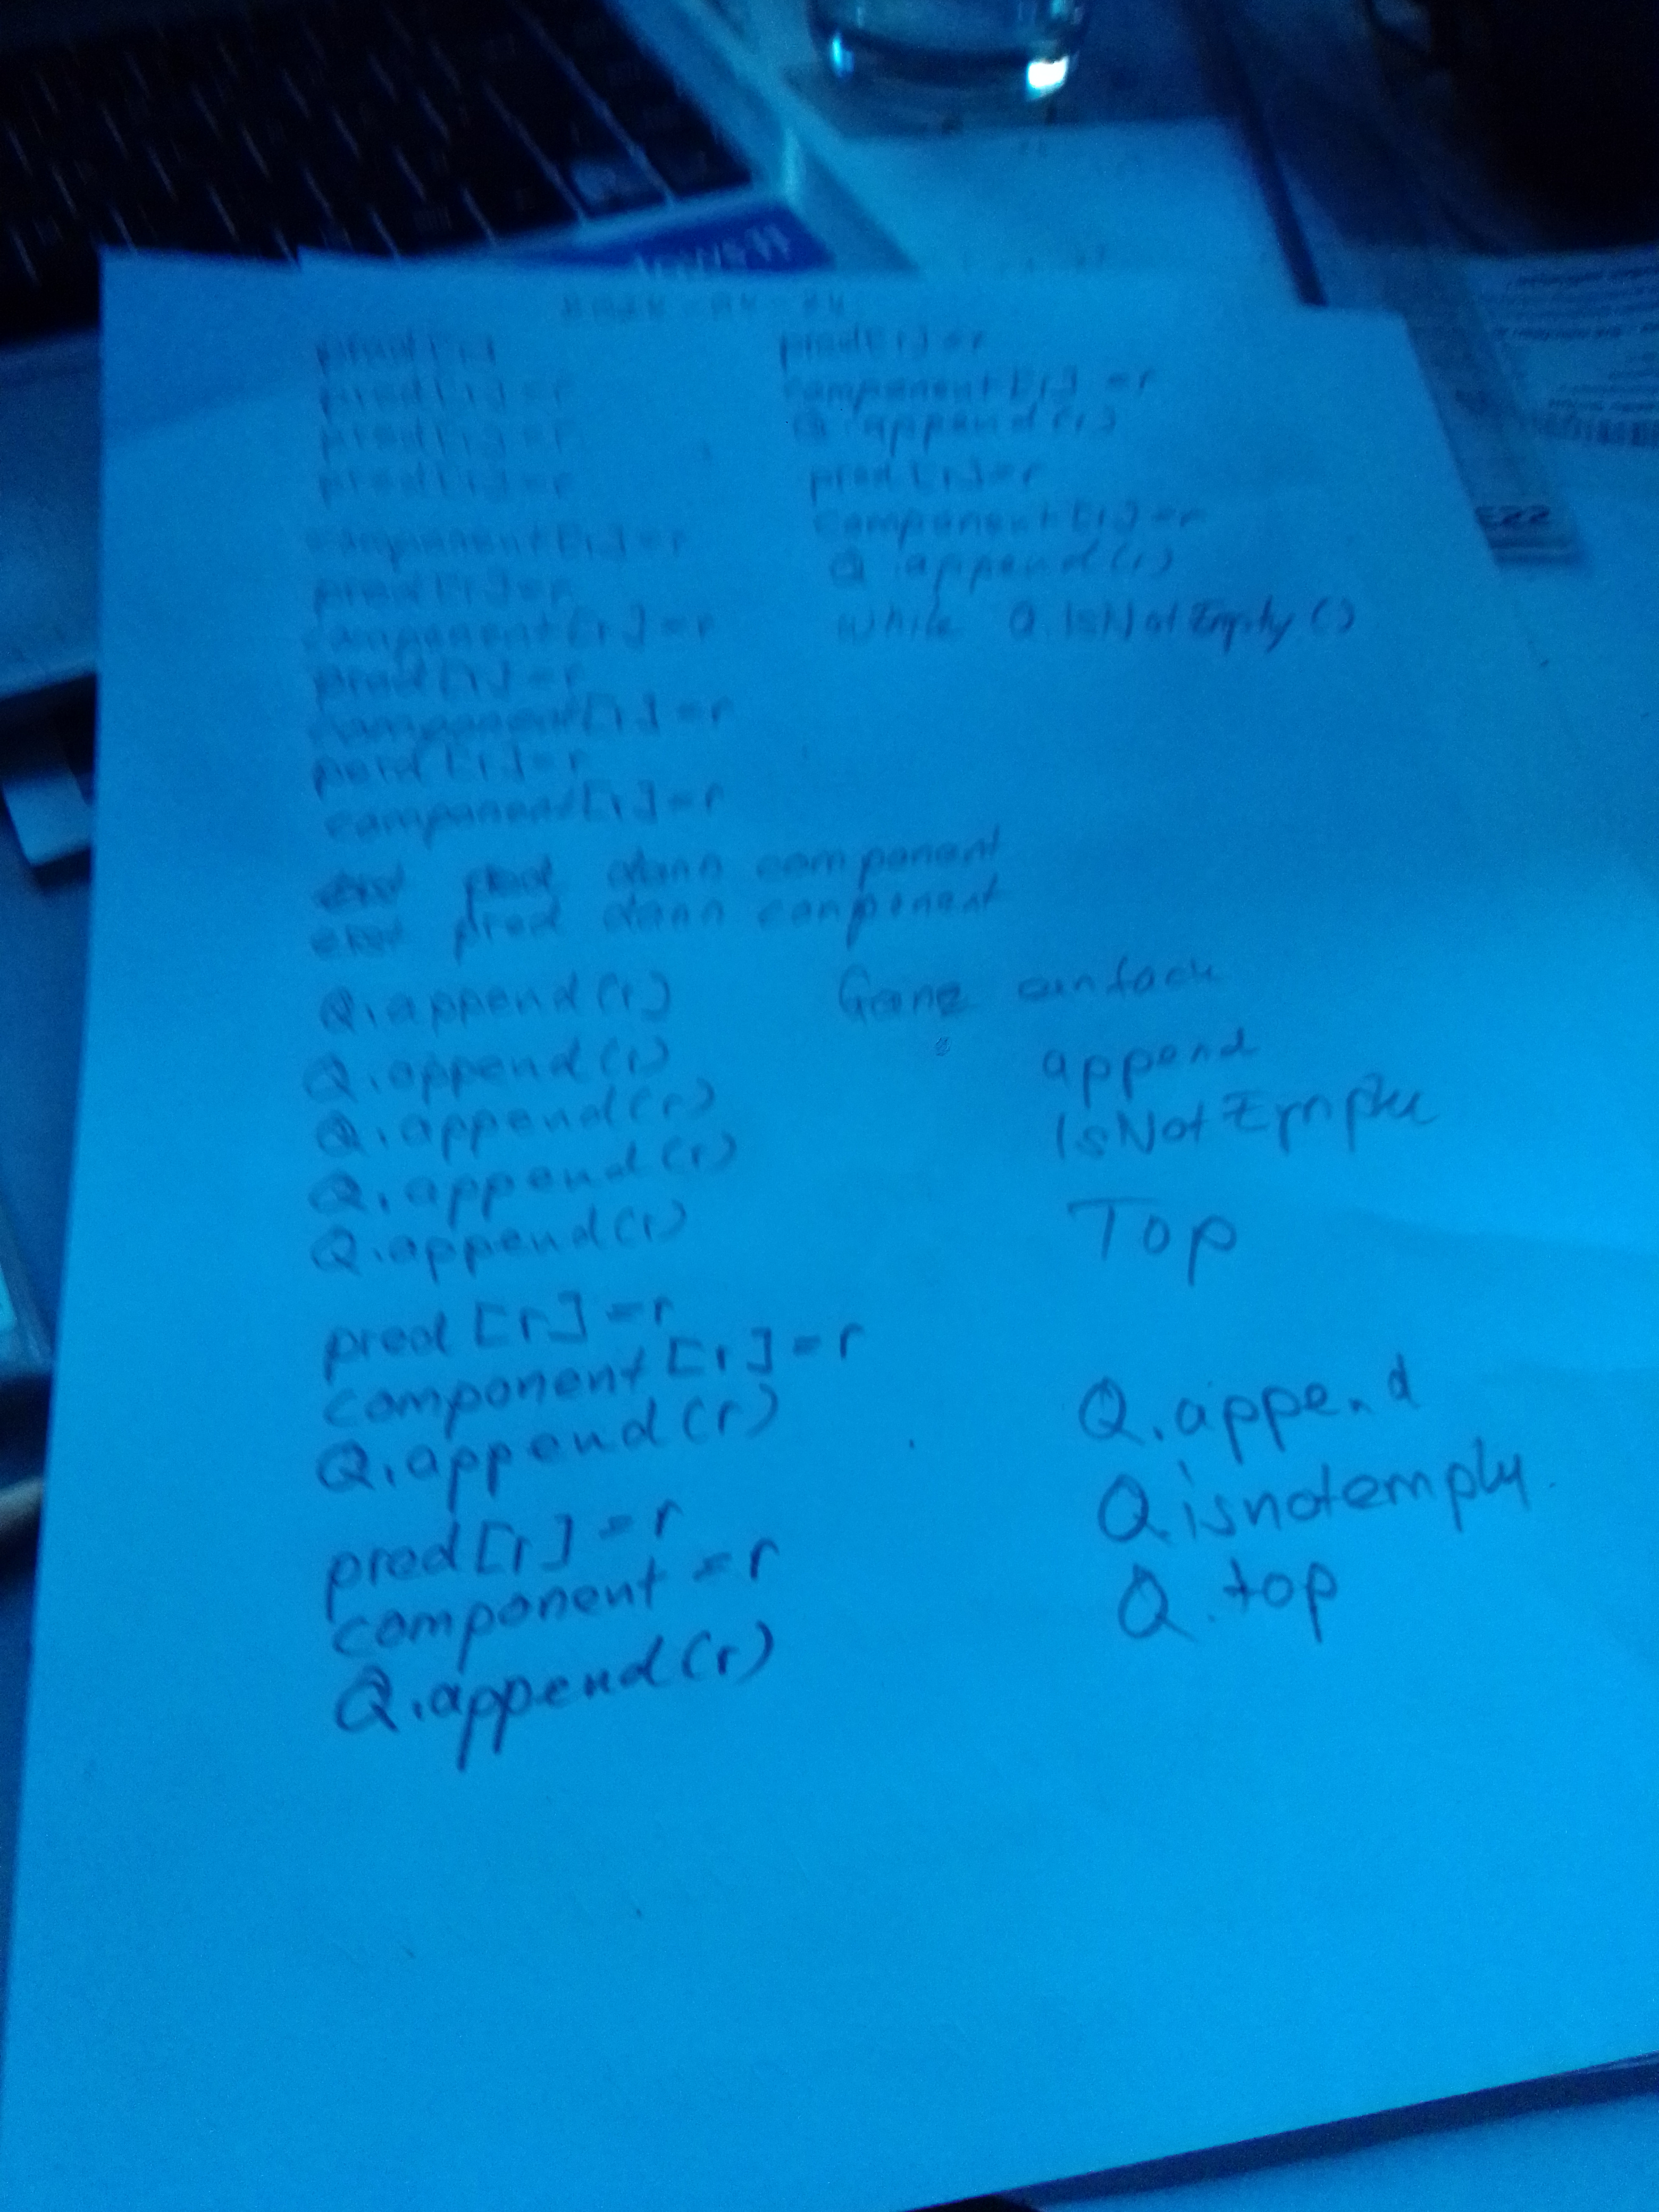 pred[r]
pred[r]=r
pred[r]=r
pred[r]=r
component[r]=r
pred[r]=r
component[r]=r
pred[r]=r
component[r]=r
perd[r]=r
component[r]=r
dann component
erst pred dann component
Q.append(r)
Q.append(r)
Q.append(r)
Q.append(r)
Q.append(r)
pred[r]=r
component[r]=r
Q.append(r)
pred[r]=r
component=r
Q.append(r)
pred[r]=r
component[r]=r
Q.append(r)
pred[r]=r
component[r]=r
Q.append(r)
while Q.IsNotEmpty()
Ganz einfach
append
IsNotEmpty
Top
Q.append
Q.isnotempty.
Q.top